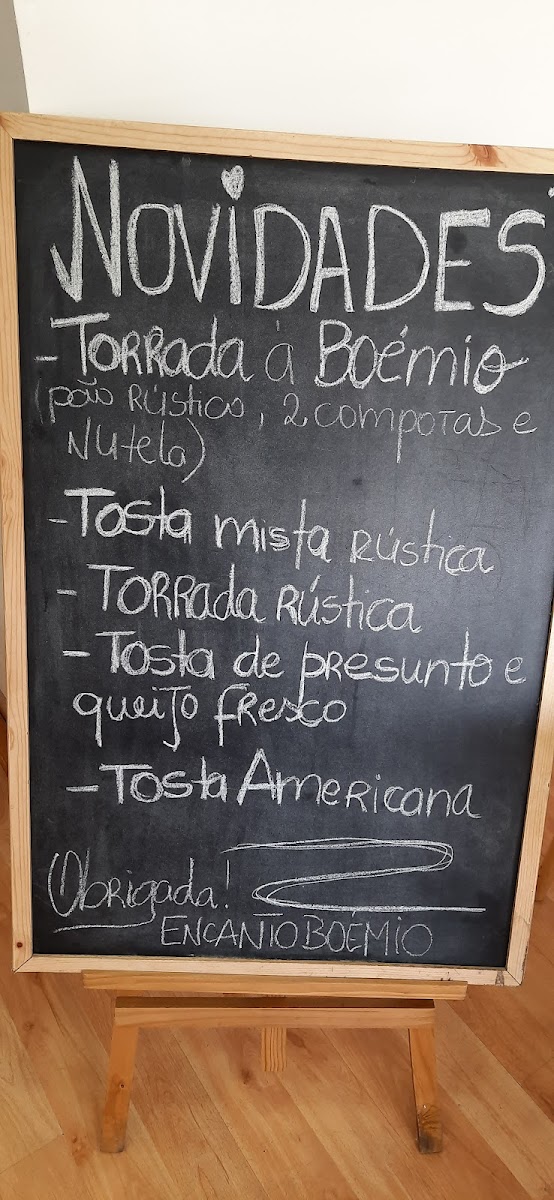 NOVIDADES
- TORRADA à BOÉMIO
(pão RÚSTICO, 2 COMPOTAS e
NUtela)
- Tosta mista RÚstica
- TORRADA RÚStica
- Tosta de presunto e
queijo fresco
- Tosta Americana
Obrigada!
ENCANTO BOÉMIO